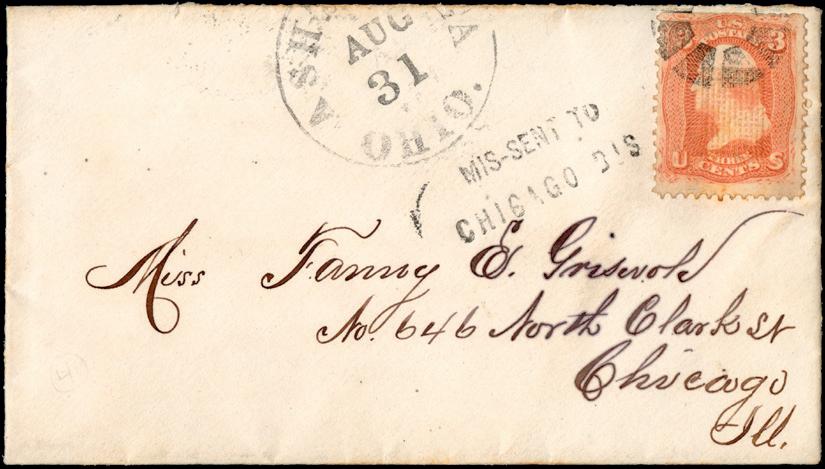 AUG
31
OHIO.
MIS-SENT TO
CHICAGO DIS
U.S.
POSTAGE
3
U S
THREE
CENTS
Miss Fanny E. Griswold
No. 646 North Clark st
Chicago
Ill.
4